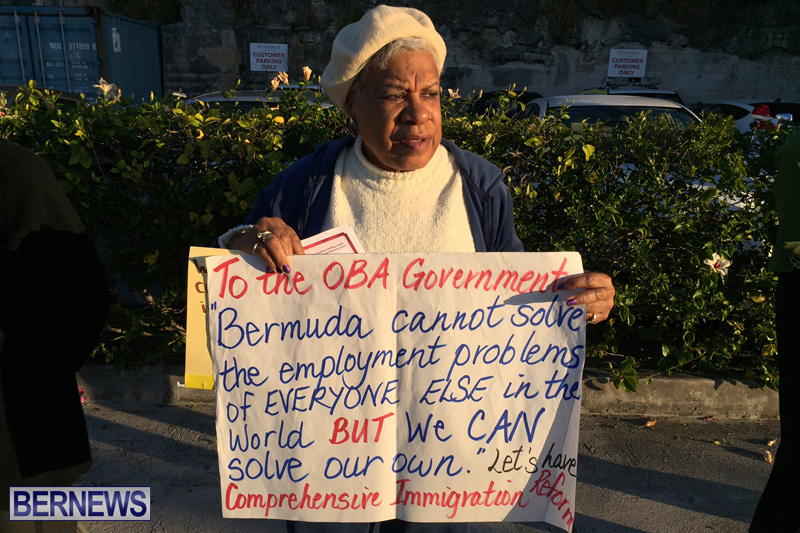 CUSTOMER
PARKING
ONLY
CUSTOMER
PARKING
ONLY
To the OBA Government
"Bermuda cannot solve
the employment problems
of EVERYONE ELSE in the
World BUT We CAN
solve our own." Let's have
Comprehensive Immigration Reform
BERNEWS